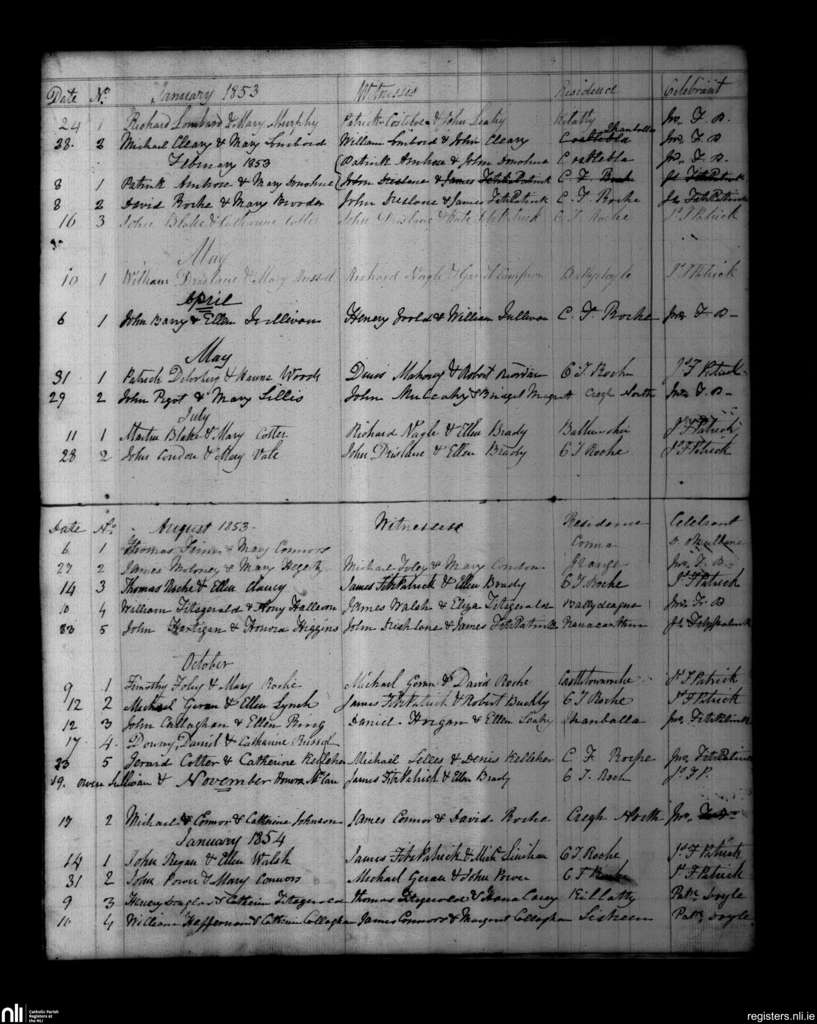 Date No. January 1853 Witnesses Residence Celebrant
24 1 Richard Lombard & Mary Murphy Patrick & John Leahy Killatty Jno. F. D.
Shanballa
28. 2 Michael Cleary & Mary Lombard William Lombard & John Cleary Jno. F. D
February 1853 Patrick Ambrose & John Donohue Jno. F. D.
8 1 Patrick Ambrose & Mary Donohue John Drislane & James FitzPatrick C. T. FitzPatrick
8 2 David Roche & Mary John Drislane & James FitzPatrick C. T. Roche Js. FitzPatrick
16 3 John Blake & Catherine Cotter John Drislane & Kate FitzPatrick C. T. Roche Js. F Patrick
May
10 1 William Drislane & Mary Russell Richard Nagle & Ballyhooly Js. F Patrick
April
6 1 John Barry & Ellen Sullivan Henry & William Sullivan C. T. Roche Jno. F. D
May
31 1 Patrick & Woods Denis Mahony & Robert Riordan C T. Roche Js. F Patrick
29 2 John Pigot & Mary Lillis John Mulcahy & Bridget Cregh North Jno. F. D
July
11 1 Martin Blake & Mary Cotter Richard Nagle & Ellen Brady Js. F Patrick
28 2 John Condon & Mary Vale John Drislane & Ellen Brady C T Roche Js. F Patrick
Date No. August 1853. Witnesses Residence Celebrant
6 1 Thomas & Mary Connors Conna
27 2 James Moloney & Mary Michael Foley & Mary Condon Grange Jno. F. D
14 3 Thomas Roche & Ellen Clancy James FitzPatrick & Ellen Brady C T Roche Js. F Patrick
10 4 William Fitzgerald & Hony Halloran James Walsh & Eliza Fitzgerald Jno. F. D
5 John Hartigan & Honora Higgins John Drislane & James FitzPatrick
October
9 1 Timothy Foley & Mary Roche Michael Geran & David Roche Castletownroche Js. F Patrick
12 2 Michael Geran & Ellen Lynch James FitzPatrick & Robert Buckly C T Roche Js. F Patrick
12 3 John Callaghan & Ellen Ring Daniel Horgan & Ellen Leahy Shanballa Jno. FitzPatrick
17 4. Downy, Daniel & Catharine Russell
23 5 Jerrard Cotter & Catherine Kelleher Michael Lillis & Denis Kelleher C F Roche Jno. FitzPatrick
19. Owen Sullivan & November Honora James FitzPatrick & Ellen Brady C T. Roch Js. F P.
17 2 Michael Connor & Catherine Johnson James Connor & David Roche Cregh North Jno.
January 1854
14 1 John Regan & Ellen Walsh James FitzPatrick & Mich. Linihan C T Roche Js. F Patrick
31 2 John Power & Mary Connors Michael Geran & John Power C T Roche Js. F Patrick
9 3 Henry Douglas & Catherine Fitzgerald Thomas Fitzgerald & Hana Carey Killatty Patk. Doyle
10 4 William Heffernan & Catherine Callaghan James Connors & Margaret Callaghan Patk. Doyle
nli Catholic Parish
Registers at
the NLI
registers.nli.ie